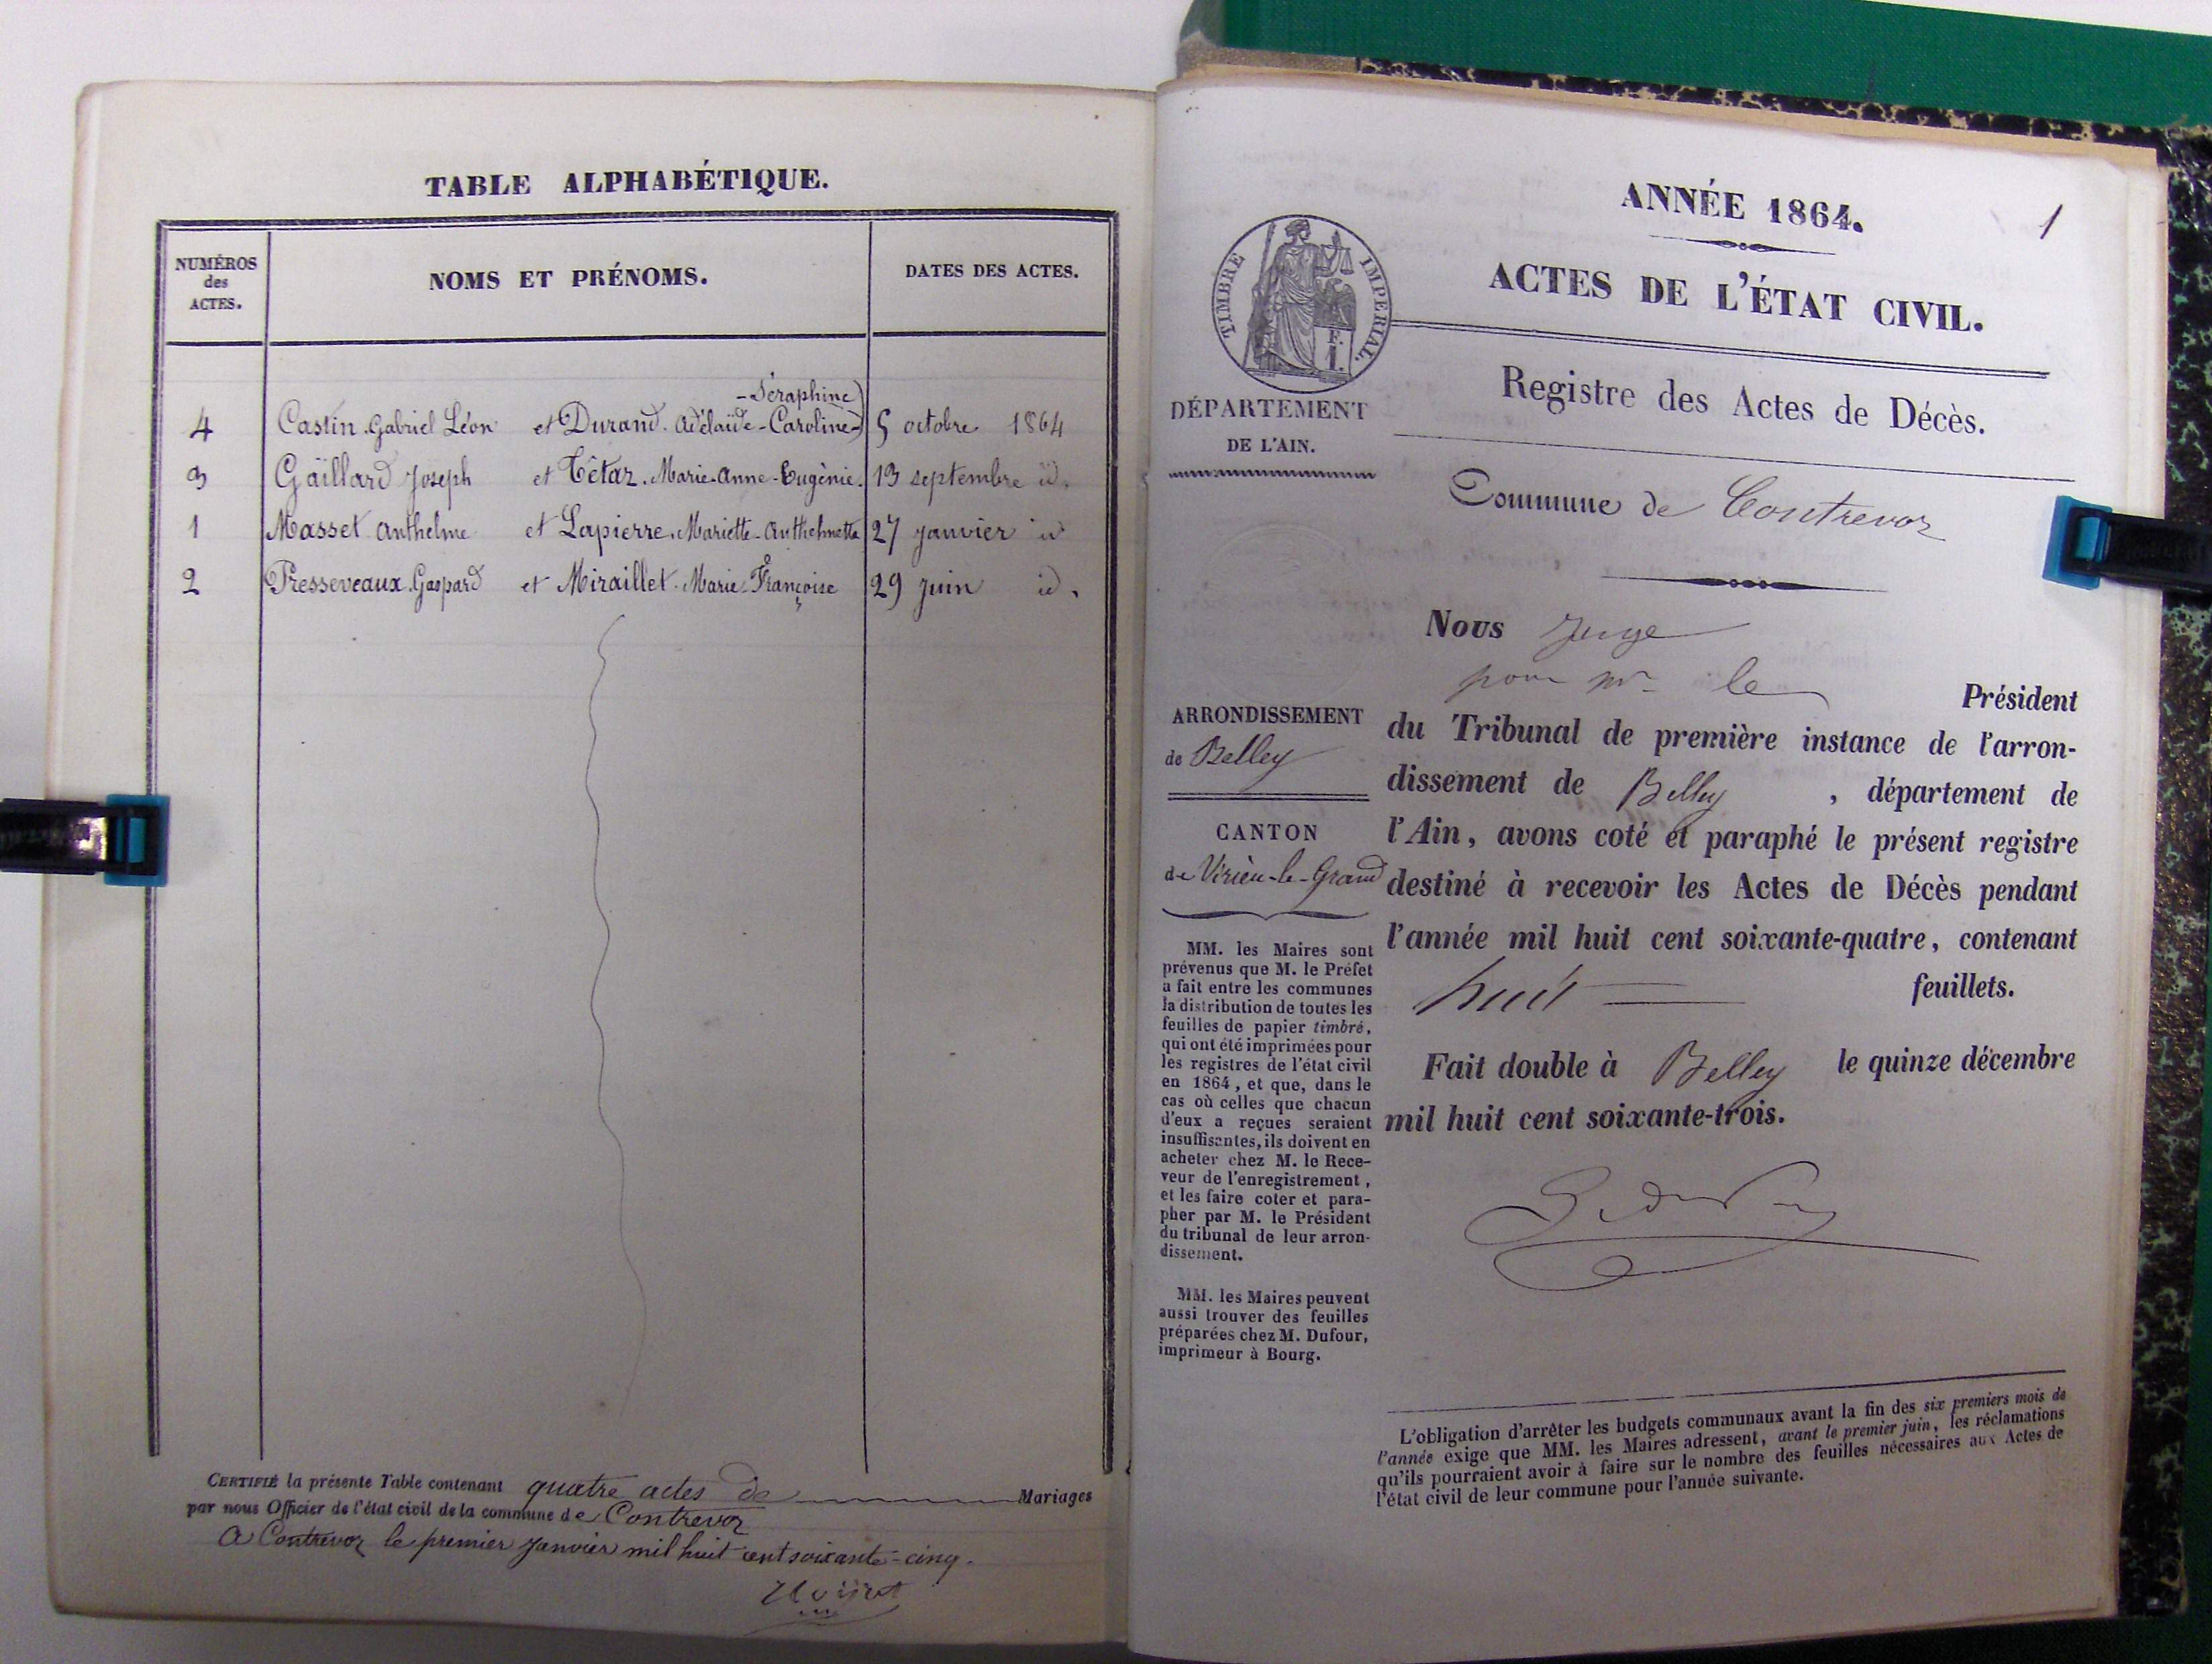 TABLE ALPHABÉTIQUE.
NUMÉROS
des
ACTES.
NOMS ET PRÉNOMS.
DATES DES ACTES.
-Séraphine)
4 Castin Gabriel Léon et Durand. Adélaïde-Caroline-) 5 octobre 1864
3 Gaillard Joseph et Têtaz. Marie-Anne-Eugénie. 13 septembre id.
1 Masset Anthelme et Lapierre. Mariette-Anthelmette 27 janvier id
2 Presseveaux. Gaspard et Miraillet. Marie-Françoise 29 juin id.
CERTIFIÉ la présente Table contenant quatre actes de Mariages
par nous Officier de l'état civil de la commune de Contrevoz
A Contrevoz le premier janvier mil huit cent soixante-cinq.
1
ANNÉE 1864.
ACTES DE L'ÉTAT CIVIL.
TIMBRE IMPERIAL.
F.
1.
DÉPARTEMENT
DE L'AIN.
Registre des Actes de Décès.
Commune de Contrevoz
Nous Juge
pour Mr le Président
du Tribunal de première instance de l'arron-
dissement de Belley, département de
l'Ain, avons coté et paraphé le présent registre
destiné à recevoir les Actes de Décès pendant
l'année mil huit cent soixante-quatre, contenant
huit feuillets.
Fait double à Belley le quinze décembre
mil huit cent soixante-trois.
ARRONDISSEMENT
de Belley
CANTON
de Virieu-le-Grand
MM. les Maires sont
prévenus que M. le Préfet
a fait entre les communes
la distribution de toutes les
feuilles de papier timbré,
qui ont été imprimées pour
les registres de l'état civil
en 1864, et que, dans le
cas où celles que chacun
d'eux a reçues seraient
insuffisantes, ils doivent en
acheter chez M. le Rece-
veur de l'enregistrement,
et les faire coter et para-
pher par M. le Président
du tribunal de leur arron-
dissement.
MM. les Maires peuvent
aussi trouver des feuilles
préparées chez M. Dufour,
imprimeur à Bourg.
L'obligation d'arrêter les budgets communaux avant la fin des six premiers mois de
l'année exige que MM. les Maires adressent, avant le premier juin, les réclamations
qu'ils pourraient avoir à faire sur le nombre des feuilles nécessaires aux Actes de
l'état civil de leur commune pour l'année suivante.